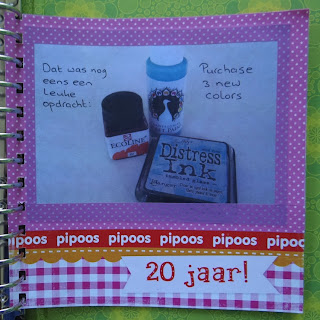 Dat was nog
eens een
leuke
opdracht:
Purchase
3 new
colors
ECOLINE
Distress
Ink
pipoos pipoos pipoos pipoos pipoos pipoos
20 jaar!